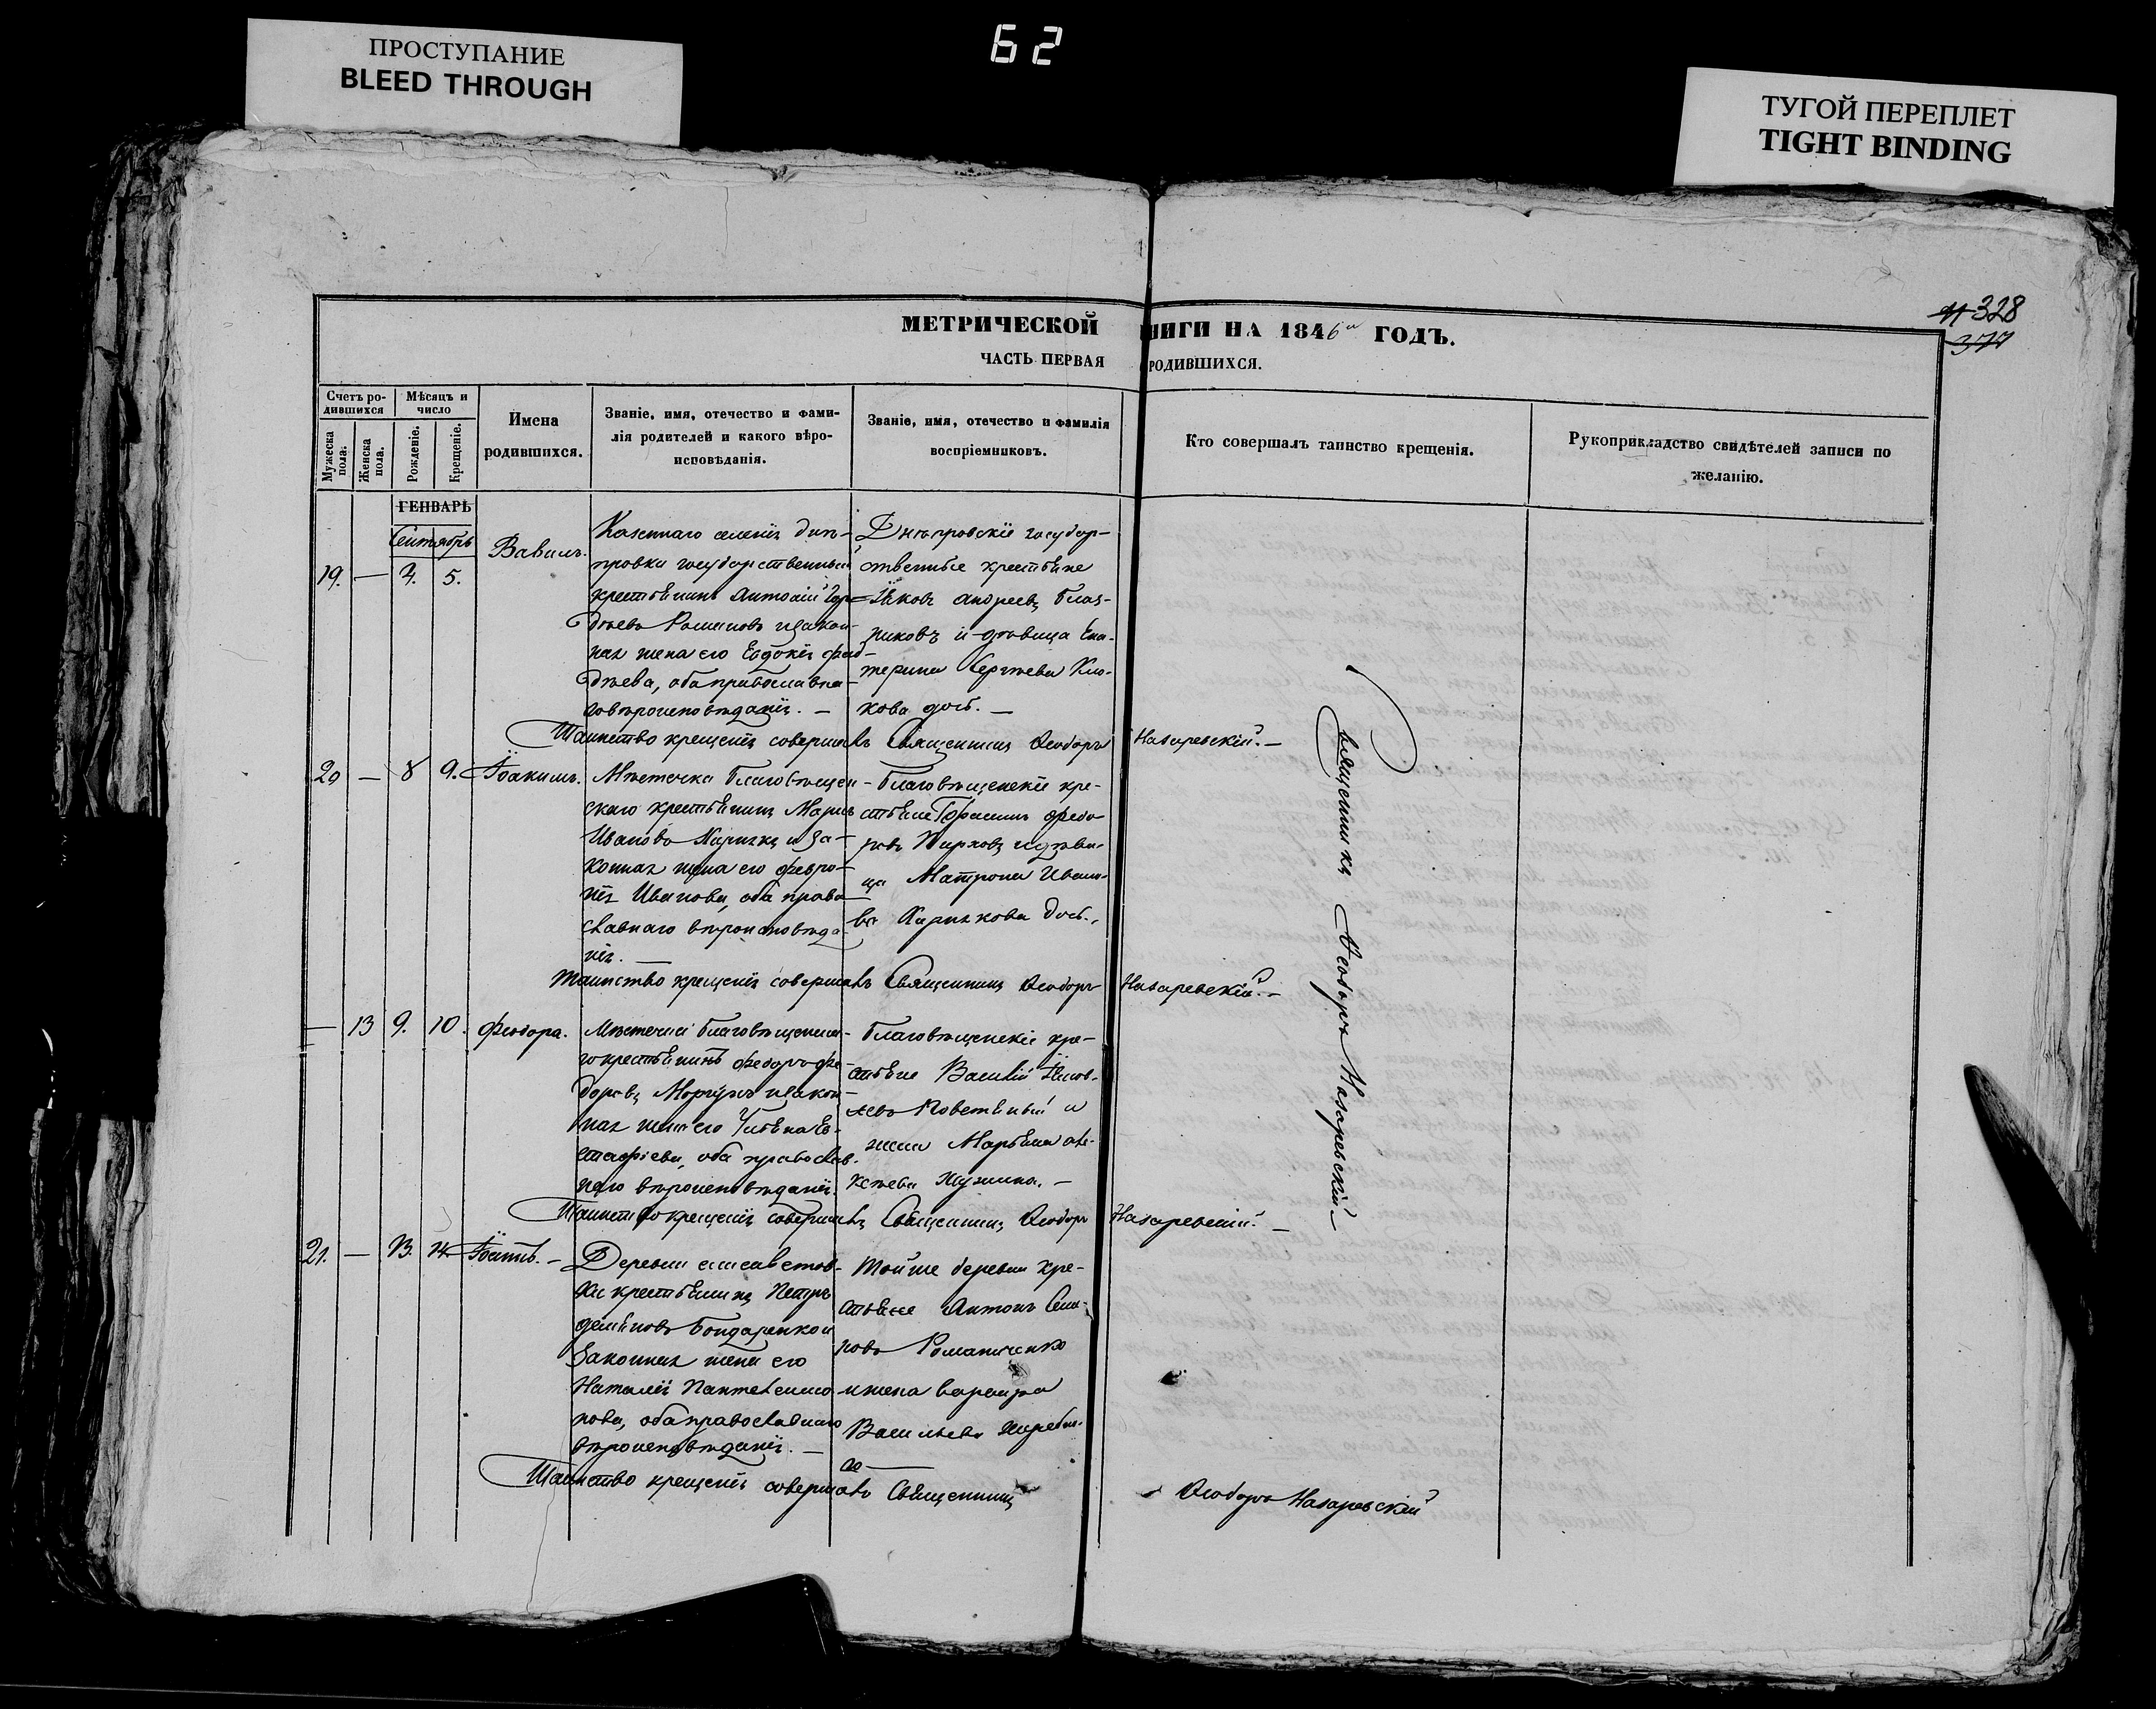 ПРОСТУПАНИЕ
BLEED THROUGH
62
ТУГОЙ ПЕРЕПЛЕТ
TIGHT BINDING
328
377
МЕТРИЧЕСКОЙ НИГИ НА 1846 ГОДЪ.
ЧАСТЬ ПЕРВАЯ РОДИВШИХСЯ.
Счетъ ро-
дившихся
Мѣсяцъ и
число
Мужеска
пола.
Женска
пола.
Рожденіе.
Крещеніе.
Имена
родившихся.
Званіе, имя, отечество и фами-
лія родителей и какого вѣро-
исповѣданія.
Званіе, имя, отечество и фамилія
воспріемниковъ.
Кто совершалъ таинство крещенія.
Рукоприкладство свидѣтелей записи по
желанію.
ГЕНВАРЬ
Сентябрь
19. — 3. 5.
Вавилъ.
Казеннаго селенія Днѣ-
провки государственный
крестьянинъ Антоній Гор-
дѣевъ Романовъ и закон-
ная жена его Евдокія
дѣева, оба православна-
го вѣроисповѣданія. —
Днѣпровскіе государ-
ственные крестьяне
Яковъ Андреевъ
и дѣвица Ека-
терина Сергѣева
кова дочь. —
Таинство крещенія совершалъ Священникъ Ѳеодоръ Назаревскій. —
20 — 8 9. Іоакимъ.
Мѣстечка Благовѣщен-
скаго крестьянинъ
Ивановъ и за-
конная жена его Февро-
нія Иванова, оба право-
славнаго вѣроисповѣда-
нія. —
Благовѣщенскіе кре-
стьяне Герасимъ Федо-
ровъ и дѣви-
ца Матрона Ивано-
ва дочь.
Таинство крещенія совершалъ Священникъ Ѳеодоръ Назаревскій. —
— 13 9. 10. Феодора.
Мѣстечка Благовѣщенска-
го крестьянинъ Федоръ Фе-
доровъ Моргунъ и закон-
ная жена его Ульяна Ев-
стафіева, оба православ-
наго вѣроисповѣданія.
Благовѣщенскіе кре-
стьяне Василій Яков-
левъ и
жена Марьяна Але-
ксѣева
Таинство крещенія совершалъ Священникъ Ѳеодоръ Назаревскій. —
21. — 13. 14. —
Деревни Елисаветов-
ки крестьянинъ Петръ
Демьяновъ Бондаренко и
законная жена его
Наталія Пантелеимо-
нова, оба православнаго
вѣроисповѣданія. —
Той же деревни кре-
стьяне Антонъ Семе-
новъ Романченко
и жена Варвара
Васильева
Таинство крещенія совершалъ Священникъ Ѳеодоръ Назаревскій
Священникъ Ѳеодоръ Назаревскій —